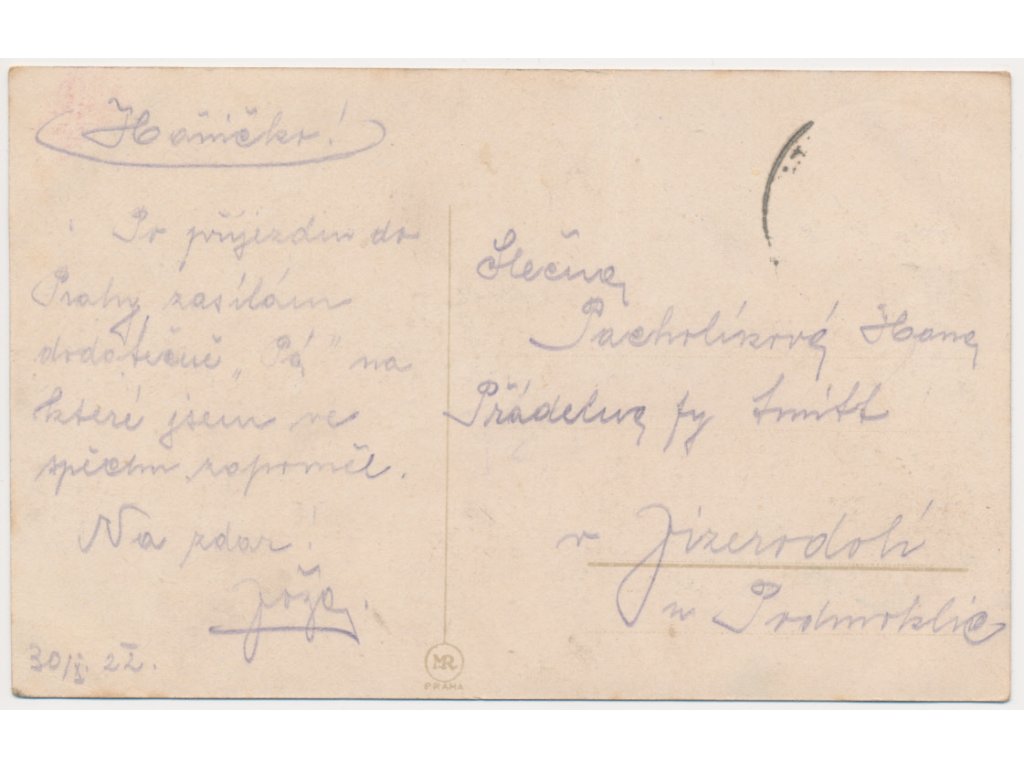 Haničko!
Po příjezdu do
Prahy zasílám
dodatečně „Pá" na
které jsem ve
spěchu zapoměl.
Na zdar!
Jóža.
30/X. 22.
Slečna
Pacholíková Hana
Přádelna fy
v Jizerodolí
u Podmoklic
MR
PRAHA